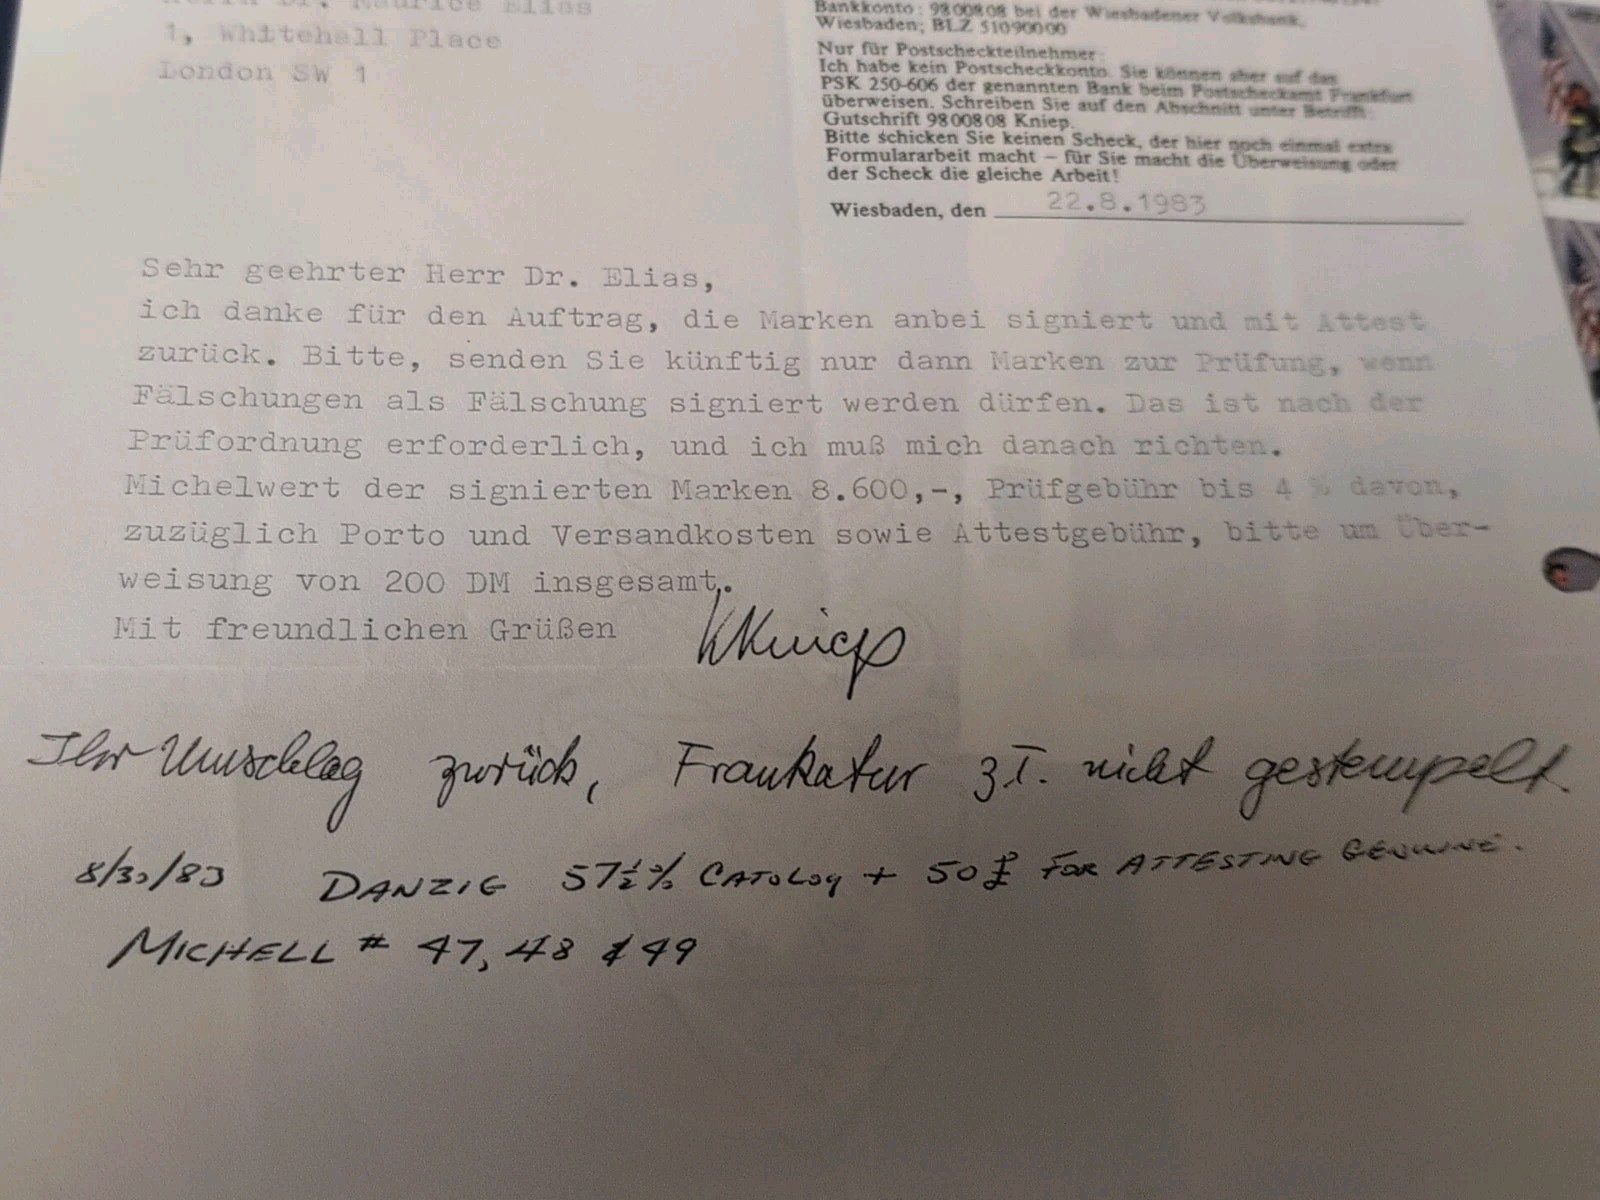 Herrn Dr. Maurice Elias
1, Whitehall Place
London SW 1
Bankkonto: 98 008 08 bei der Wiesbadener Volksbank,
Wiesbaden; BLZ 510 900 00
Nur für Postscheckteilnehmer:
Ich habe kein Postscheckkonto. Sie können aber auf das
PSK 250-606 der genannten Bank beim Postscheckamt Frankfurt
überweisen. Schreiben Sie auf den Abschnitt unter Betrifft:
Gutschrift 98 008 08 Kniep.
Bitte schicken Sie keinen Scheck, der hier noch einmal extra
Formulararbeit macht – für Sie macht die Überweisung oder
der Scheck die gleiche Arbeit!
Wiesbaden, den 22.8.1983
Sehr geehrter Herr Dr. Elias,
ich danke für den Auftrag, die Marken anbei signiert und mit Attest
zurück. Bitte, senden Sie künftig nur dann Marken zur Prüfung, wenn
Fälschungen als Fälschung signiert werden dürfen. Das ist nach der
Prüfordnung erforderlich, und ich muß mich danach richten.
Michelwert der signierten Marken 8.600,-, Prüfgebühr bis 4 % davon,
zuzüglich Porto und Versandkosten sowie Attestgebühr, bitte um Über-
weisung von 200 DM insgesamt.
Mit freundlichen Grüßen Kniep
Ihr Umschlag zurück, Frankatur z.T. nicht gestempelt.
8/30/83 DANZIG 57½% CATOLOG + 50£ FOR ATTESTING GENUINE.
MICHELL # 47, 48 & 49